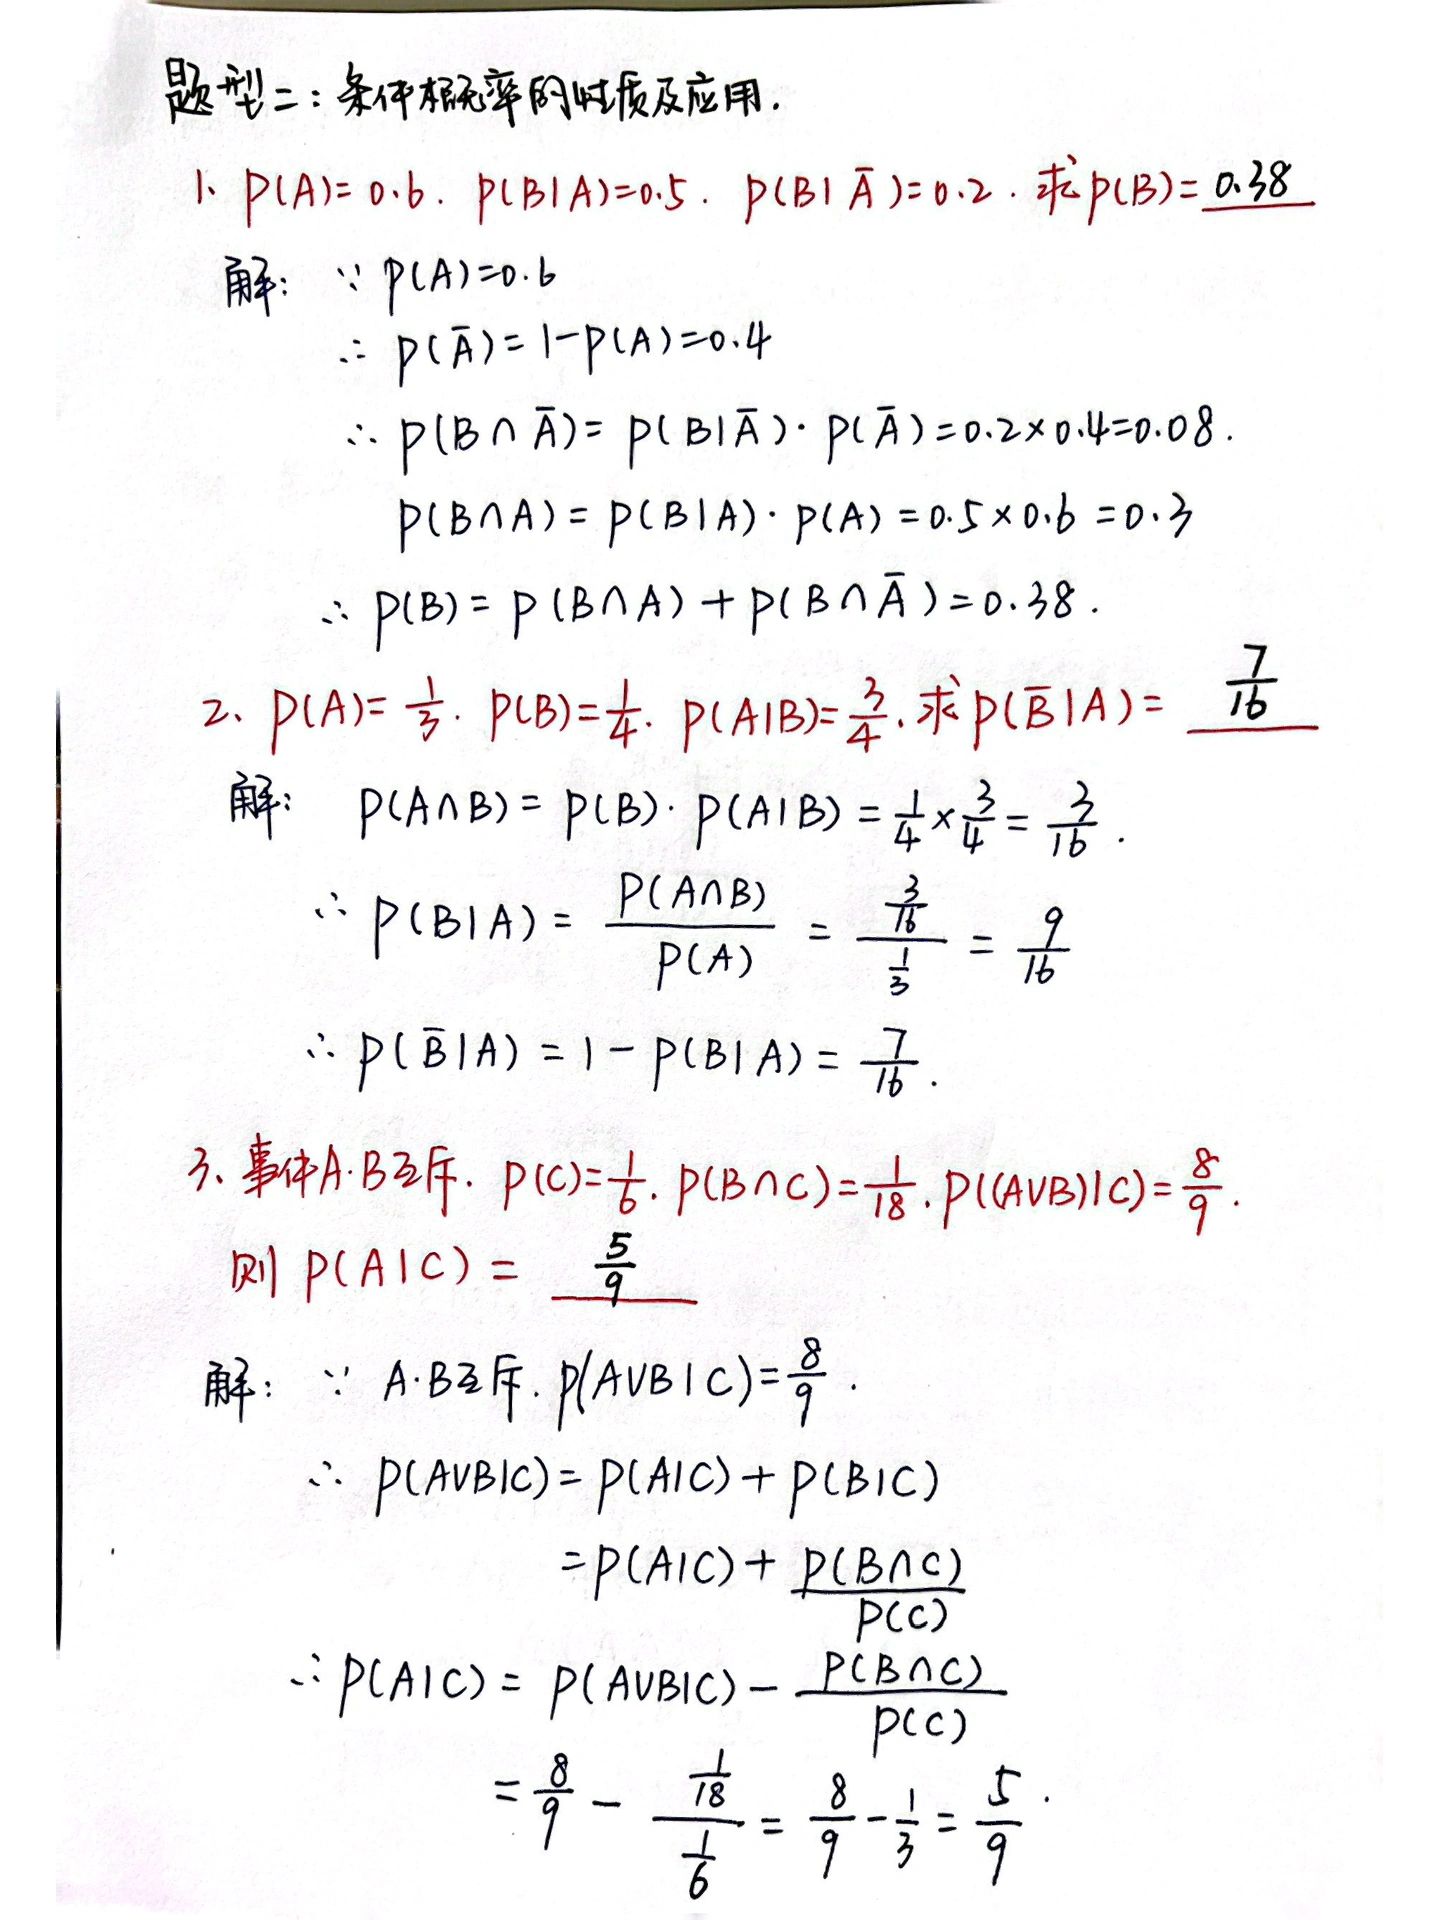 题型二：条件概率的性质及应用.
1、P(A)=0.6. P(B|A)=0.5. P(B|Ā)=0.2. 求P(B)=0.38
解: ∵ P(A)=0.6
∴ P(Ā)=1-P(A)=0.4
∴ P(B∩Ā)= P(B|Ā)·P(Ā)=0.2×0.4=0.08.
P(B∩A)= P(B|A)·P(A)=0.5×0.6=0.3
∴ P(B)= P(B∩A)+P(B∩Ā)=0.38.
2、P(A)=1/3. P(B)=1/4. P(A|B)=3/4. 求P(B̄|A)= 7/16
解: P(A∩B)= P(B)·P(A|B)=1/4×3/4=3/16.
∴ P(B|A)= P(A∩B)/P(A) = (3/16)/(1/3) = 9/16
∴ P(B̄|A)=1-P(B|A)=7/16.
3、事件A.B互斥. P(C)=1/6. P(B∩C)=1/18. P((A∪B)|C)=8/9.
则 P(A|C)= 5/9
解: ∵ A.B互斥. P(A∪B|C)=8/9.
∴ P(A∪B|C)= P(A|C)+P(B|C)
=P(A|C)+ P(B∩C)/P(C)
∴P(A|C)= P(A∪B|C)- P(B∩C)/P(C)
=8/9 - (1/18)/(1/6) = 8/9-1/3=5/9.